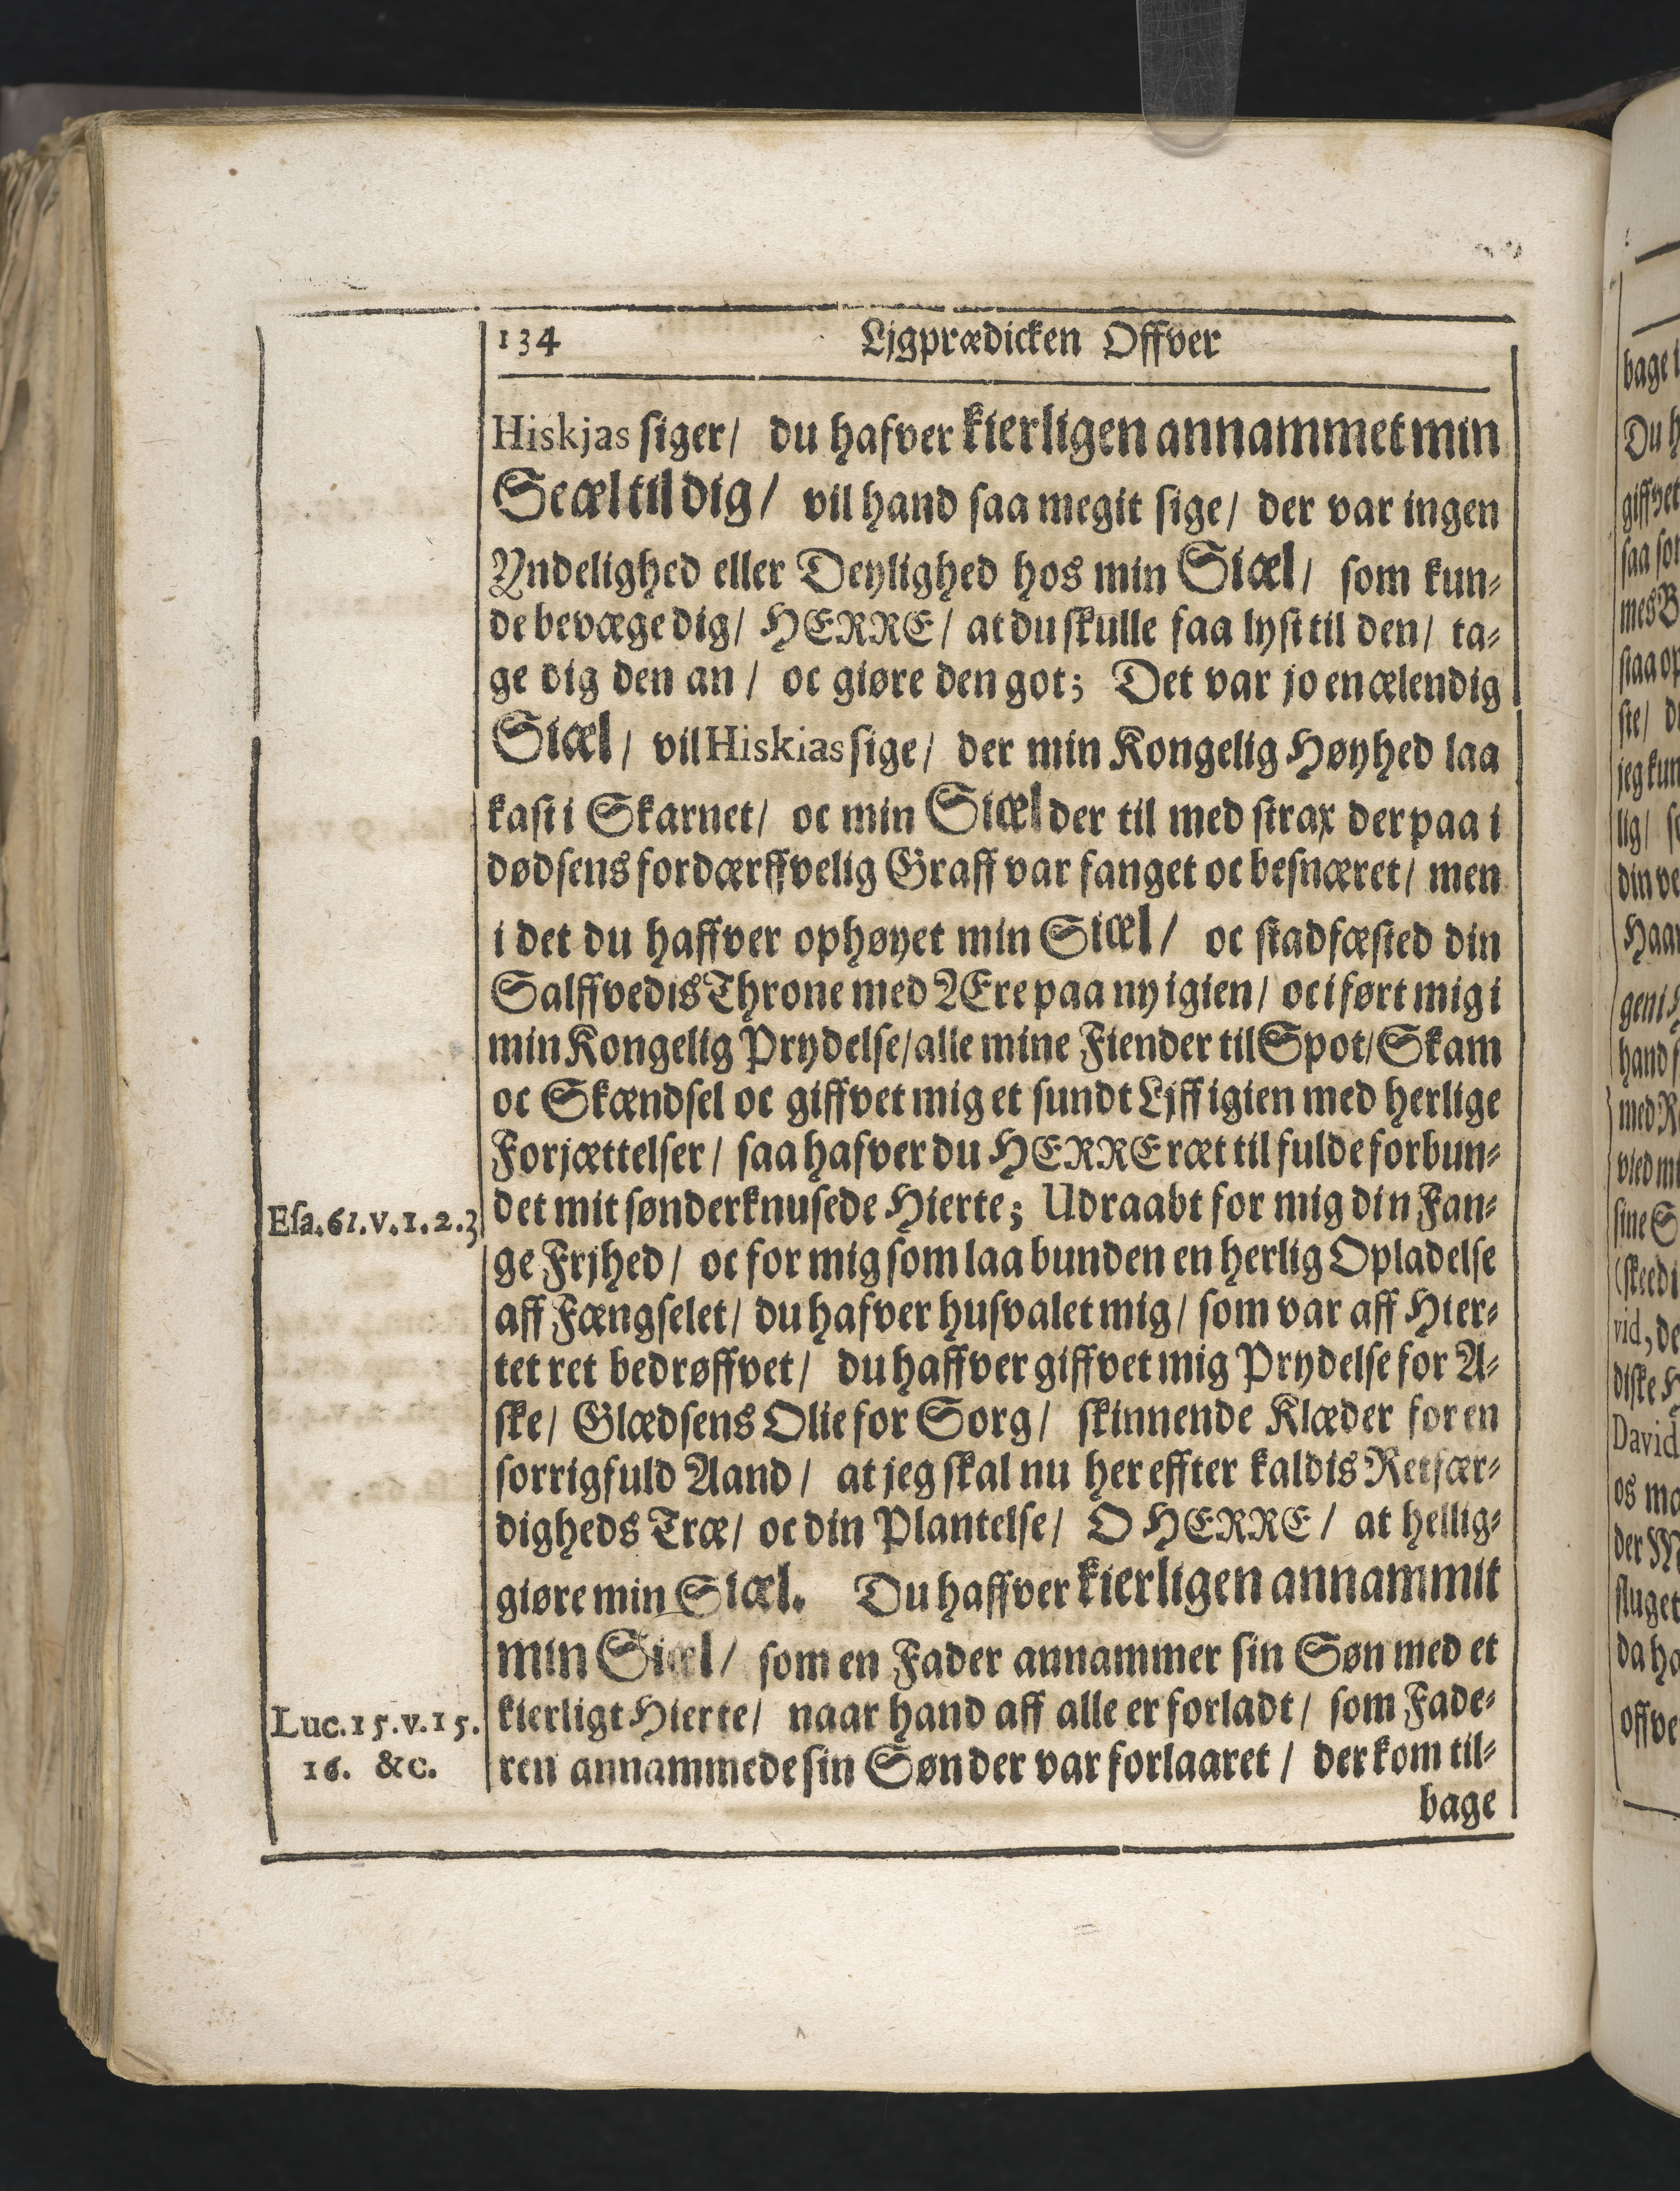 134 Ljgprædicken Offver
Hiskjas siger/ du hafver kierligen annammet min
Seæl til dig/ vil hand saa megit sige/ der var ingen
Yndelighed eller Deylighed hos min Siæl/ som kun-
de bevæge dig/ HERRE/ at du skulle faa lyst til den/ ta-
ge dig den an/ oc giøre den got; Det var jo en ælendig
Siæl/ vil Hiskias sige/ der min Kongelig Høyhed laa
kast i Skarnet/ oc min Siæl der til med strax der paa i
dødsens fordærffvelig Graff var fanget oc besnæret/ men
i det du haffver ophøyet min Siæl/ oc stadfæsted din
Salffvedis Throne med Ære paa ny igien/ oc iført mig i
min Kongelig Prydelse/ alle mine Fiender til Spot/ Skam
oc Skændsel oc giffvet mig et sundt Ljff igien med herlige
Forjættelser/ saa hafver du HERRE ræt til fulde forbun-
Esa. 61. v. 1. 2. 3 det mit sønderknusede Hierte; Udraabt for mig din Fan-
ge Frjhed/ oc for mig som laa bunden en herlig Opladelse
aff Fængselet/ du hafver husvalet mig/ som var aff Hier-
tet ret bedrøffvet/ du haffver giffvet mig Prydelse for A-
ske/ Glædsens Olie for Sorg/ skinnende Klæder for en
sorrigfuld Aand/ at jeg skal nu her effter kaldis Retfær-
digheds Træ/ oc din Plantelse/ O HERRE/ at hellig-
giøre min Siæl. Du haffver kierligen annammit
min Siæl/ som en Fader annammer sin Søn med et
Luc. 15. v. 15. kierligt Hierte/ naar hand aff alle er forladt/ som Fade-
16. &c. ren annammede sin Søn der var forlaaret/ der kom til-
bage
bage i
Du h
giffvet
saa som
mes B
staa op
ste/ du
jeg kun
lig/ se
din ve
Haan
gen i
hand s
med R
vied mi
sine S
(skeed i
vid, de
diske H
David
os ma
der M
sluget
da ha
offve